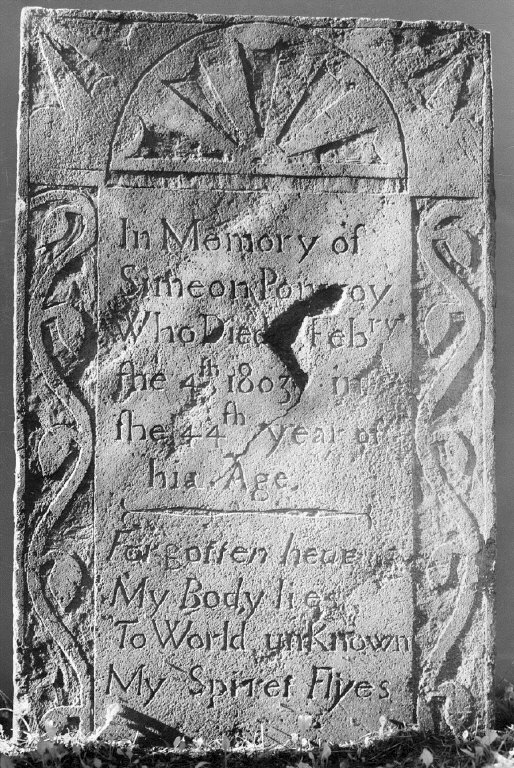 In Memory of
Simeon
Who Died Febry
the 4th 1803 in
the 44th year of
his Age.
Forgotten here
My Body lies
To World unknown
My Spirret Flyes